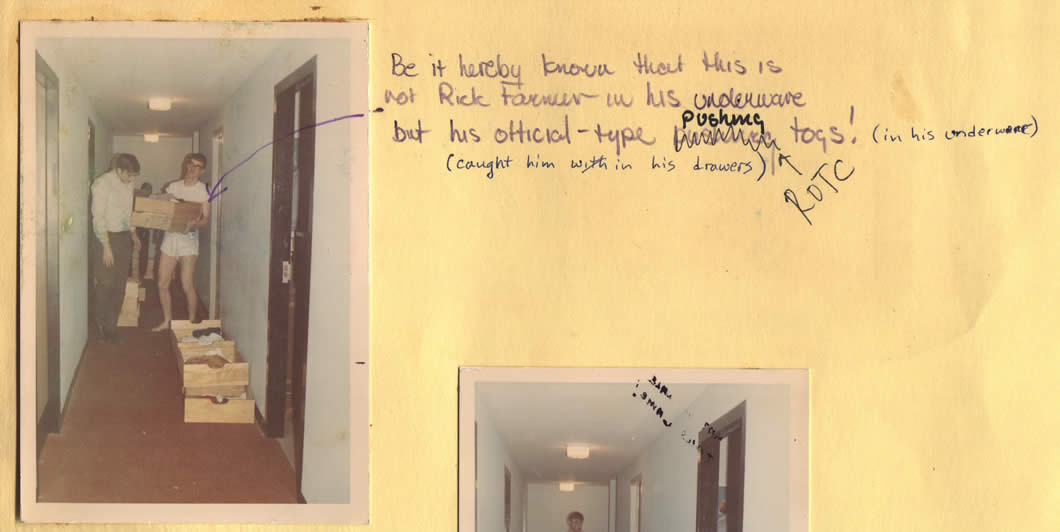 Be it hereby known that this is
not Rick Farmer in his underware
but his official-type pushing togs! (in his underware)
(caught him with in his drawers) ROTC